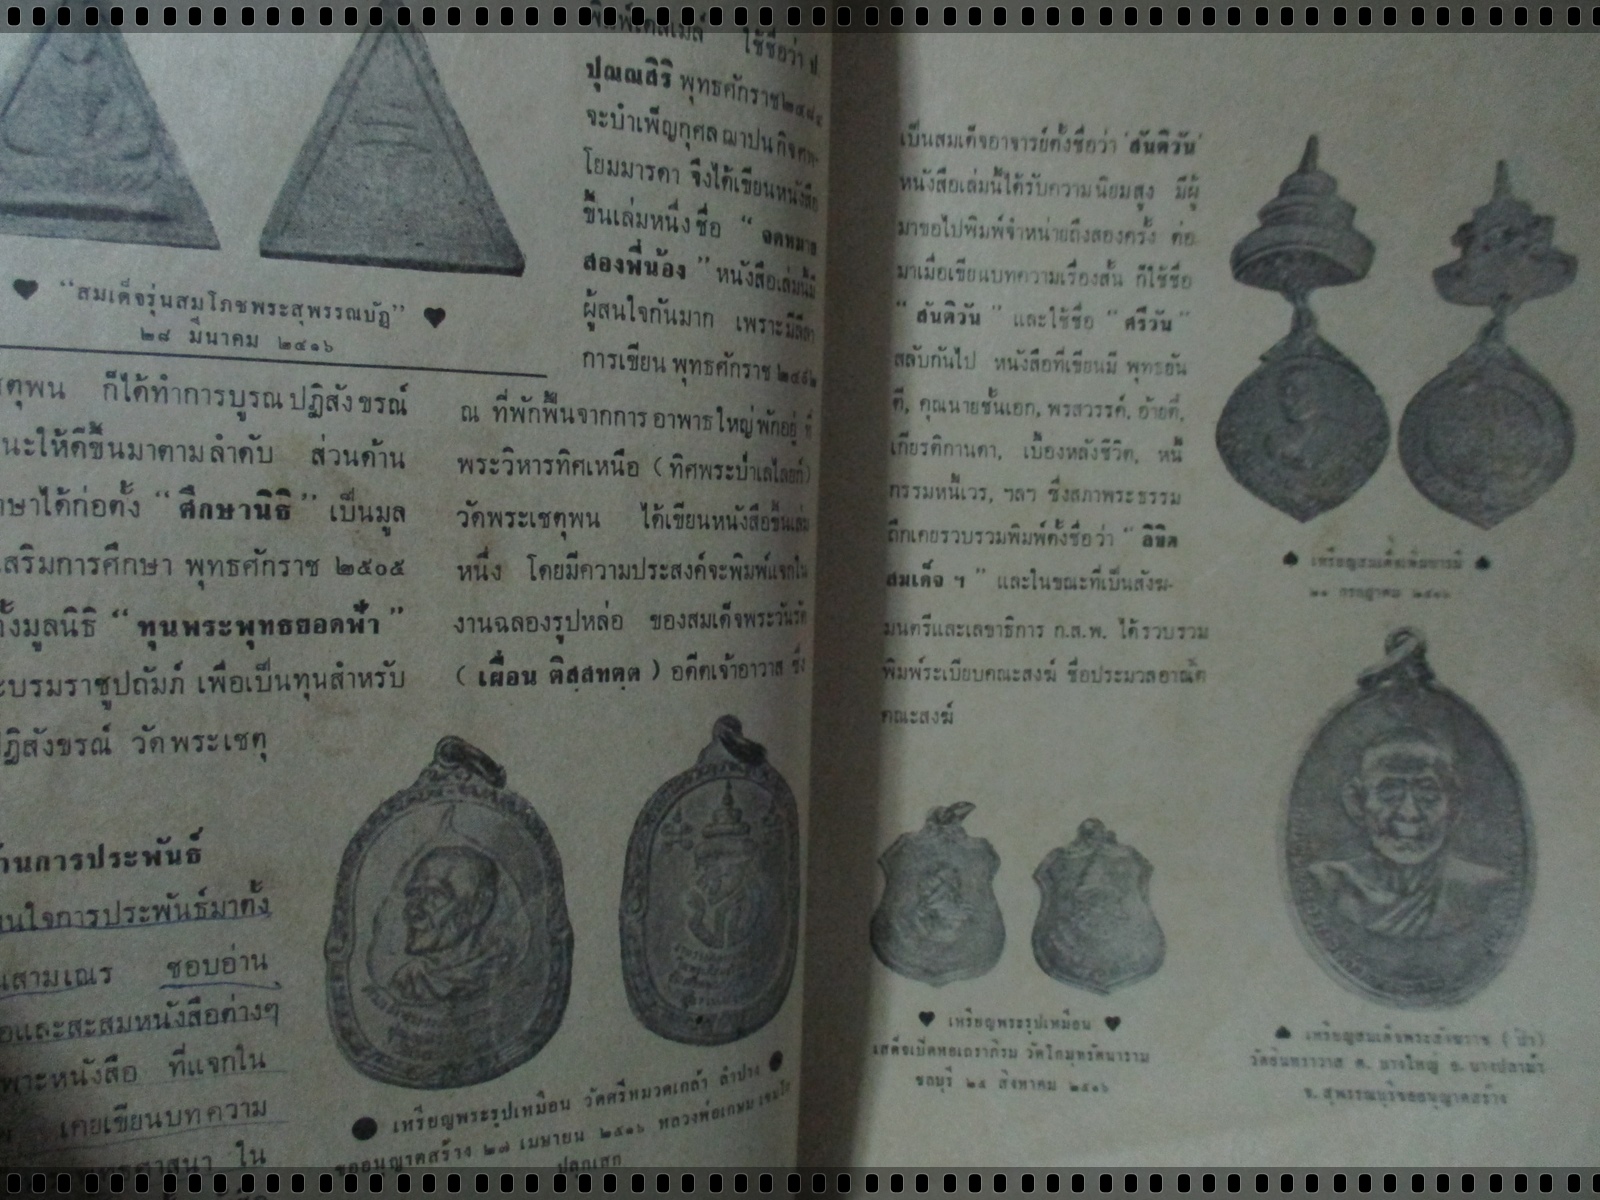 "สมเด็จรุ่นสมโภชพระสุพรรณบัฏ"
๒๘ มีนาคม ๒๕๑๖
ก็ได้ทำการบูรณปฏิสังขรณ์
นะให้ดีขึ้นมาตามลำดับ ส่วนด้าน
ษาได้ก่อตั้ง "ศึกษานิธิ" เป็นมูล
เสริมการศึกษา พุทธศักราช ๒๕๐๕
ั้งมูลนิธิ "ทุนพระพุทธยอดฟ้า"
ะบรมราชูปถัมภ์ เพื่อเป็นทุนสำหรับ
ปฏิสังขรณ์ วัดพระเชตุ
านการประพันธ์
นใจการประพันธ์มาตั้ง
นสามเณร ชอบอ่าน
และสะสมหนังสือต่างๆ
พาะหนังสือ ที่แจกใน
เคยเขียนบทความ
ใน
ใช้ชื่อว่า ป.
ปุณณสิริ พุทธศักราช
จะบำเพ็ญกุศลฌาปนกิจ
โยมมารดา จึงได้เขียนหนังสือ
ขึ้นเล่มหนึ่งชื่อ "จดหมาย
สองพี่น้อง" หนังสือเล่มนี้มี
ผู้สนใจกันมาก เพราะมีลีลา
การเขียน พุทธศักราช
ณ ที่พักฟื้นจากการอาพาธใหญ่พักอยู่ที่
พระวิหารทิศเหนือ (ทิศพระป่าเลไลยก์)
วัดพระเชตุพน ได้เขียนหนังสือขึ้นเล่ม
หนึ่ง โดยมีความประสงค์จะพิมพ์แจกใน
งานฉลองรูปหล่อ ของสมเด็จพระวันรัต
(เผื่อน ติสสทตฺต) อดีตเจ้าอาวาส ซึ่ง
เหรียญพระรูปเหมือน วัดศรีหมวดเกล้า ลำปาง
ขออนุญาตสร้าง ๒๗ เมษายน ๒๕๑๖ หลวงพ่อเกษม เขมโก
ปลุกเสก
เป็นสมเด็จอาจารย์ตั้งชื่อว่า 'สันติวัน'
หนังสือเล่มนี้ได้รับความนิยมสูง มีผู้
มาขอไปพิมพ์จำหน่ายถึงสองครั้ง ต่อ
มาเมื่อเขียนบทความเรื่องสั้น ก็ใช้ชื่อ
"สันติวัน" และใช้ชื่อ "ศรีวัน"
สลับกันไป หนังสือที่เขียนมี พุทธอัน
คุณนายชั้นเอก, พรสวรรค์,
เกียรติกานดา, เบื้องหลังชีวิต, หนี้
กรรมหนี้เวร, ฯลฯ ซึ่งสภาพระธรรม
ถึกเคยรวบรวมพิมพ์ตั้งชื่อว่า "ลิขิต
สมเด็จ ฯ" และในขณะที่เป็นสังฆ-
มนตรีและเลขาธิการ ก.ส.พ. ได้รวบรวม
พิมพ์ระเบียบคณะสงฆ์ ชื่อประมวลอาณัติ
คณะสงฆ์
๒๑ กรกฎาคม ๒๕๑๖
เหรียญพระรูปเหมือน
เสด็จเปิดหอเถราภิรม วัดโกมุทรัตนาราม
ชลบุรี ๒๕ สิงหาคม ๒๕๑๖
เหรียญสมเด็จพระสังฆราช (ป๋า)
ต. บางใหญ่ อ. บางปลาม้า
จ. สุพรรณบุรีขออนุญาตสร้าง